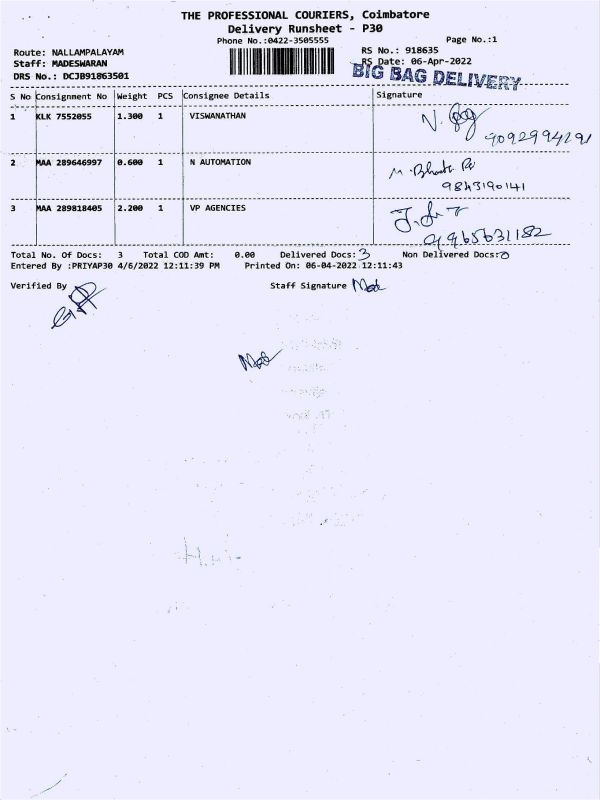 THE PROFESSIONAL COURIERS, Coimbatore
Delivery Runsheet - P30
Phone No.:0422-3505555
Page No.:1
Route: NALLAMPALAYAM
RS No.: 918635
Staff: MADESWARAN
RS Date: 06-Apr-2022
DRS No.: DCJB91863501
BIG BAG DELIVERY
S No Consignment No Weight PCS Consignee Details Signature
1 KLK 7552055 1.300 1 VISWANATHAN
9092994291
2 MAA 289646997 0.600 1 N AUTOMATION
9843190141
3 MAA 289818405 2.200 1 VP AGENCIES
9965631182
Total No. Of Docs: 3 Total COD Amt: 0.00 Delivered Docs: 3 Non Delivered Docs: 0
Entered By :PRIYAP30 4/6/2022 12:11:39 PM Printed On: 06-04-2022 12:11:43
Verified By
Staff Signature